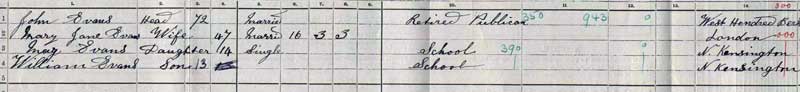 1 John Evans Head 72 Married Retired Publican 350 943 0 West Hendred Berks
2 Mary Jane Evans Wife 47 Married 16 3 3 London 000
3 May Evans Daughter 14 Single School 390 N. Kensington
4 William Evans Son 13 School N. Kensington